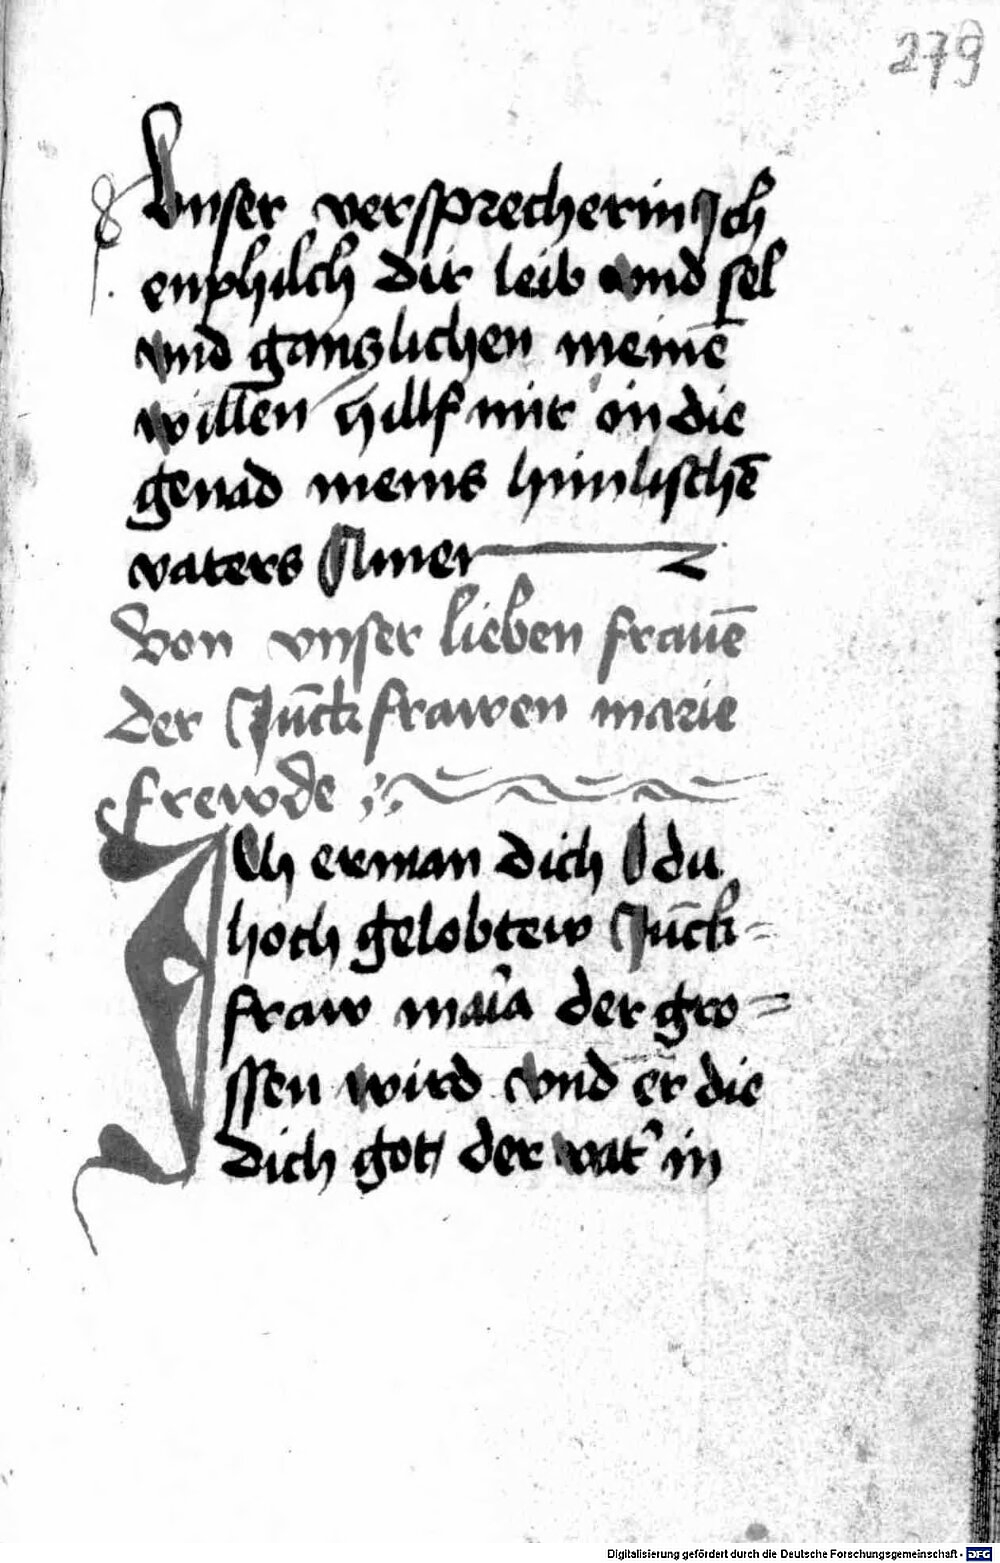 279
Vnser versprecherin Ich
enphilch dir leib vnd sel
vnd ganczlichen meinē
willen hillf mir in die
genad meins himlischē
vaters Amen
Von vnser lieben frauē
der Jūckfrawen marie
frewde
Ich erman dich O du
hoch gelobtew Jūck=
fraw maīa der gro=
ssen wird vnd er die
dich got der vat' in
Digitalisierung gefördert durch die Deutsche Forschungsgemeinschaft - DFG